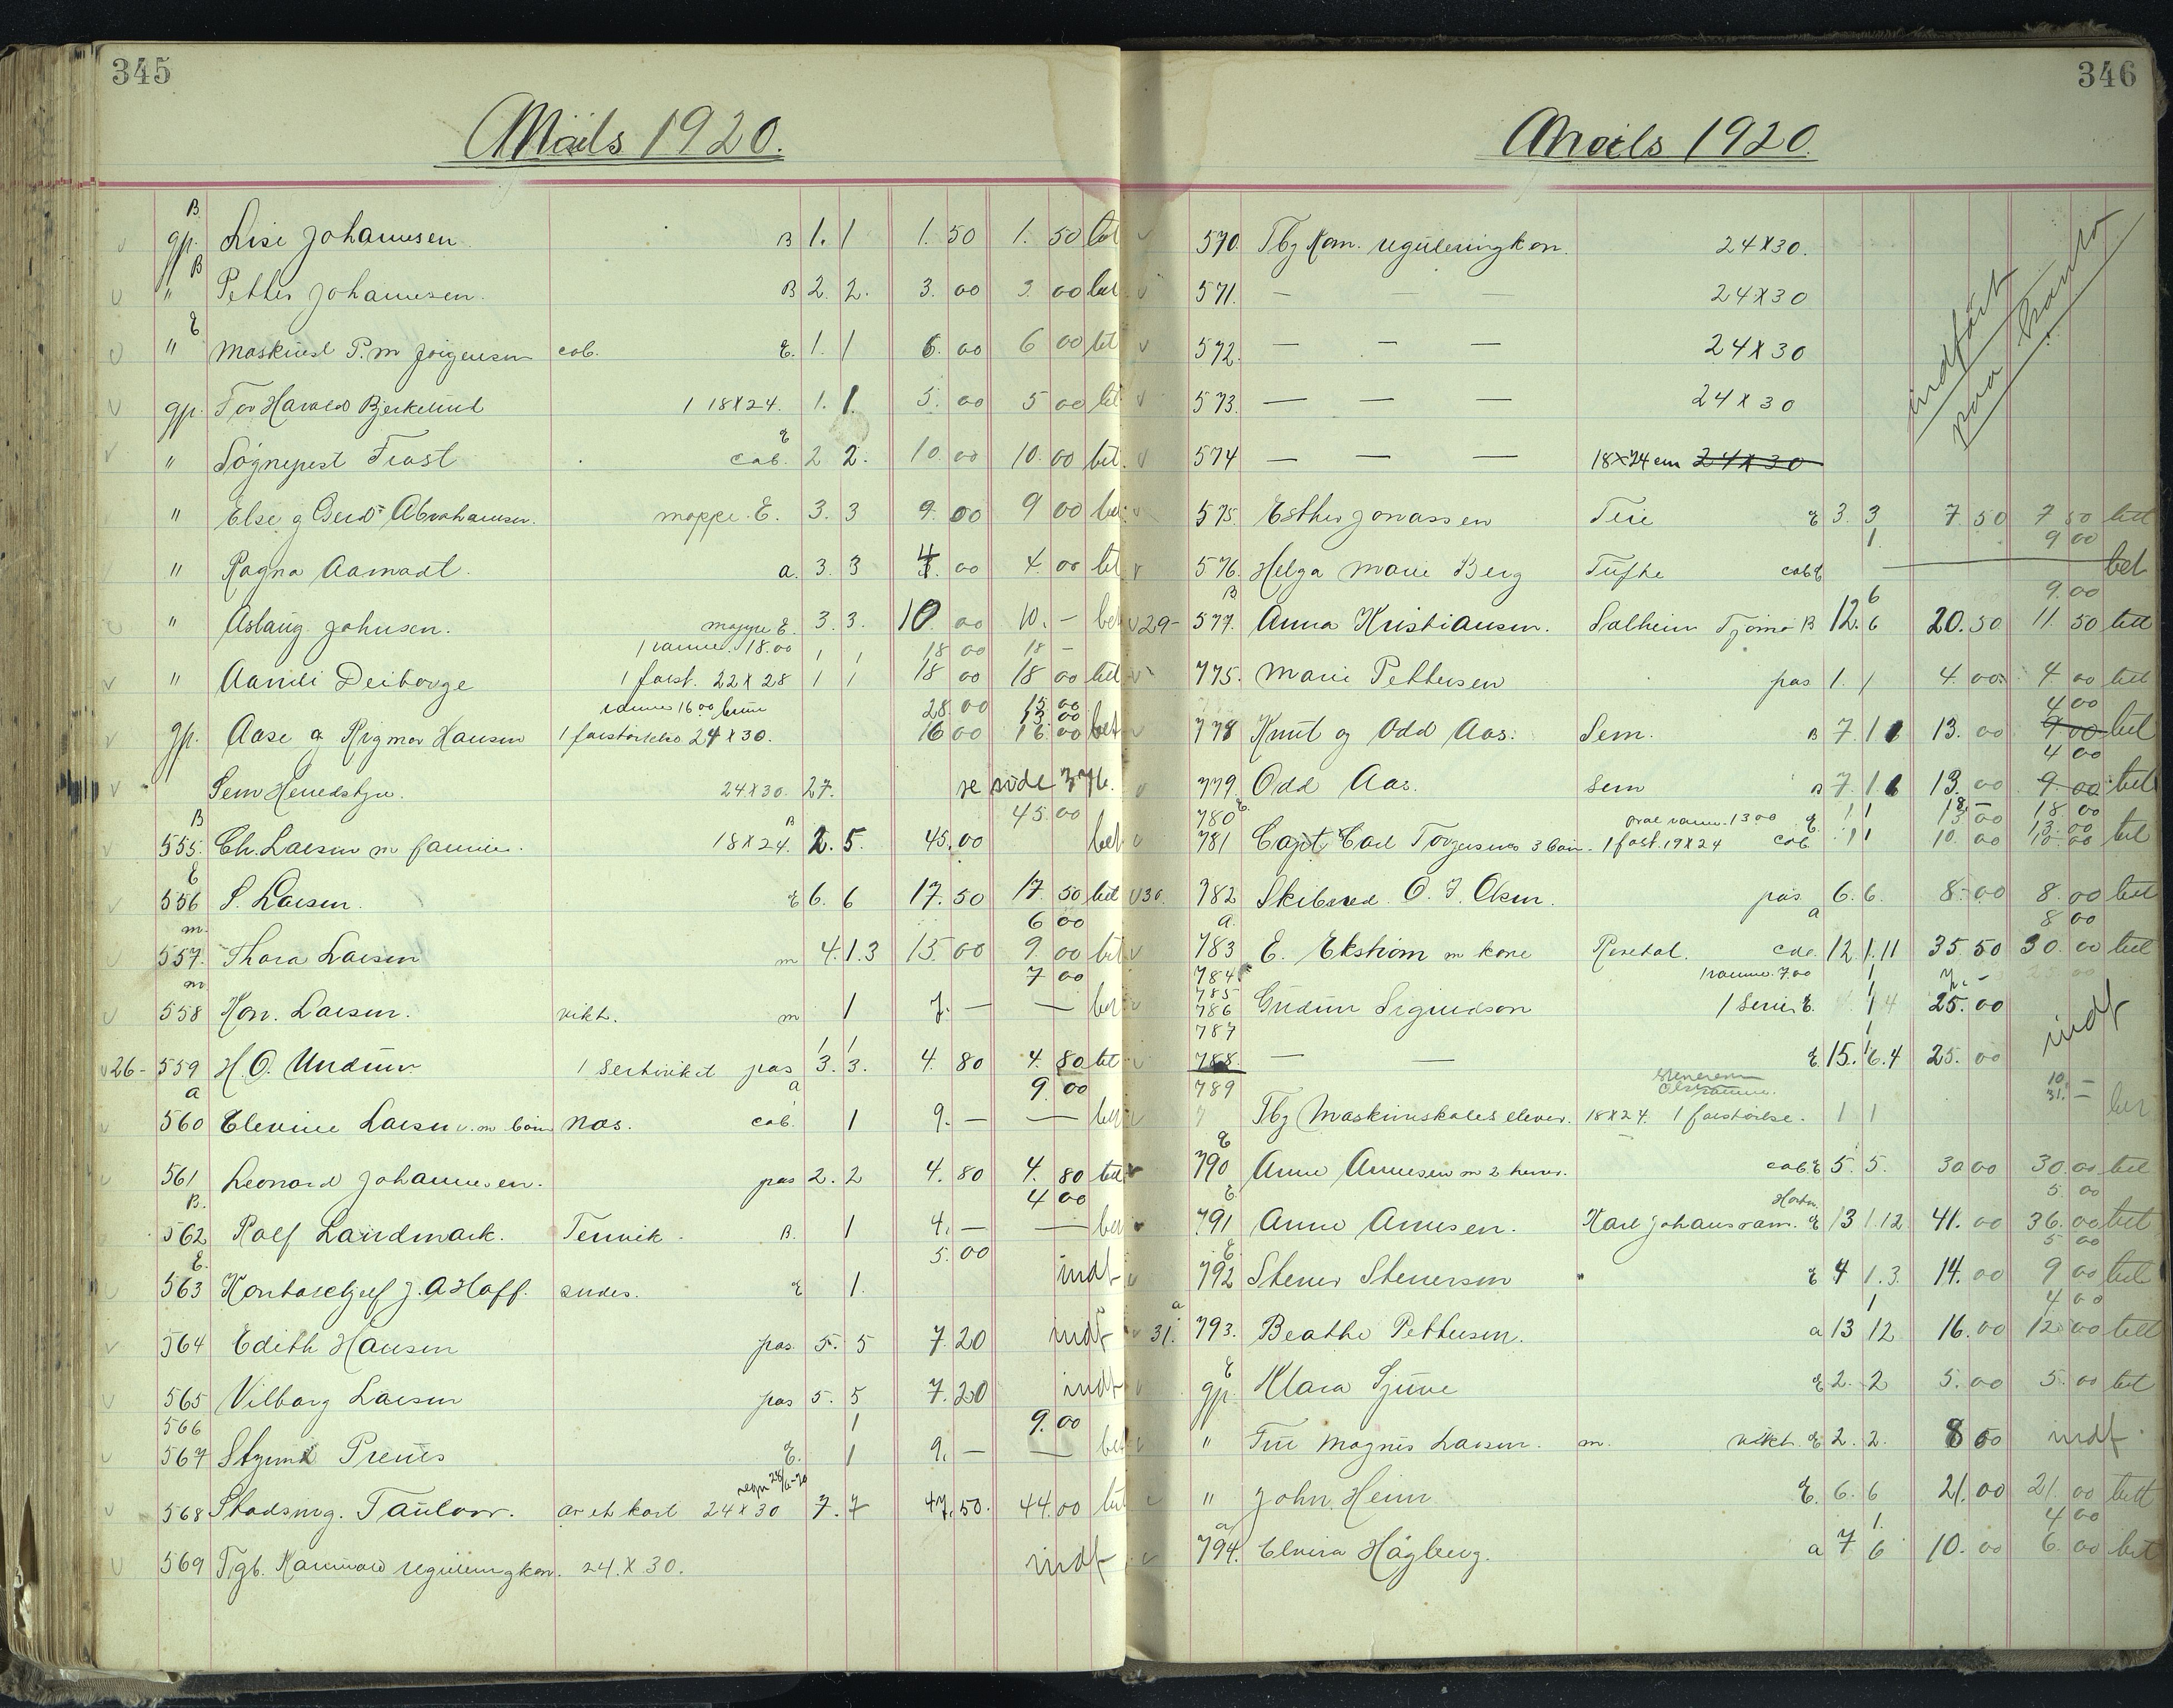 345
Mails 1920.
B
gp. Lise Johannesen B 1. 1 1. 50 1. 50 bet
B
" Petter Johannesen. B 2. 2. 3. 00 3. 00 bet
E
" Maskinst P. M Jörgensen cab. E. 1. 1 6. 00 6 00 bet
gp. Tor Harald Bjerkelund 1 18X24. 1. 1. 5. 00 5 00 bet
E
" Sognepest Trost cab. 2 2. 10. 00 10. 00 bet.
" Else g Gerd Abrahamsen. moppe. E. 3. 3 9. 00 9 00 bet
" Ragna Aamodt. a. 3. 3 4. 00 4. 00 bet
" Aslaug Johnsen. moppe E. 3. 3. 10 00 10. - bet
1 ramme. 18.00 1 1 18 00 18 -
" Aamili Deiborge 1 forst. 22X28 1 1 18 00 18 00 bet
ramme 16 00 28. 00 15 00
13 00
gp. Aase g Rigmor Hansen 1 forstörrelse 24X30. 16 00 16. 00 bet
Sem Herredstyre. 24X30. 27. se side 376.
B B 45. 00
555. Ch. Larsen m familie. 18X24. 2. 5. 45. 00 bet
E
556 S. Larsen. E 6. 6 17. 50 17. 50 bet
m. 6 00
557. Thora Larsen m 4. 1. 3 15. 00 9. 00 bet
m 7 00
558 Kon. Larsen. vikt. m 1 7. — — bet
1 1
26- 559 H. O. Undrum pas 3. 3. 4. 80 4. 80 bet
a a 9. 00
560 Elevine Larsen m barn Nøs. cab. 1 9. — — bet
561 Leonard Johannesen. pas 2. 2 4. 80 4. 80 bet
B. 4 00
562 Ralf Landmark. Tenvik. B. 1 4. — — bet
E. 5. 00
563 Kontorchef J. A Hoff. E 1. indf
564 Edith Hansen pas. 5. 5 7. 20 indf
565 Vilborg Larsen pas 5. 5 7. 20 indf
566 1 9. 00
567 Preuss E. 1 9. — — bet
regn 28/6-20
568 Stadsing. Taulow. av et kart 24X30 7. 7 47. 50. 44. 00 bet
569 Tgb. reguleringkon. 24.X 30. indf
346
Mails 1920
570. Tbg Kom. reguleringkon. 24X30.
571. — — — 24X30
572. — — — 24X30
573. — — — 24X30
574 — — — 18X24 cm 24X30
indfört paa konto
575. Esther Jonassen Teie E 3. 3 7. 50 7 50 bett
1. 9 00
576. Helga Marie Berg Tufte cab E bet
B 6 9. 00
29- 577. Anna Kristiansen. Solheim Tjømø B 12. 6 20. 50 11. 50 bett
775. Marie Pettersen pas 1. 1 4. 00 4. 00 bett
4 00
778 Knut og Odd Aas. Sem. B 7. 1 6 13. 00 9 00 bet
4 00
779 Odd Aas. Sem B 7. 1 6 13. 00 9. 00 bet
780 E. oval ramme. 13 00 E. 1 1 18. - 18. 00
13 00 13. 00
781 Capt. Carl Torgersens 3 barn 1 forst. 19X24 cab. 1 1 10. 00 10. 00 bet
30. 782 Skibsred. O. J. Olsen. pas 6. 6. 8. 00 8. 00 bett
a. a 8 00
783 E. Ekstrom m kone Rosedal. 12 1. 11 35. 50 30. 00 bett
784 1 ramme. 7.00 1 7. -
785
786 Gudrun Sigurdson 1 Serie E. 1 4 25. 00 indf
787 1
788 — — E 15. 6. 4 25. 00
789 10. -
31. -
Tbg Maskinskoles elever. 18X24. 1 forstörrelse. 1 1 bet
E
790 Anna Annesen m 2 herrer. cab. E 5. 5. 30 00 30. 00 bet
E. 5. 00
791 Anna Annesen. Karl Johans ram. E 13 1. 12 41. 00 36. 00 bet
E. 5 00
792 Stener Stenersen E 4 1. 3. 14. 00 9 00 bet
a 1 4 00
31. 793. Beatha Pettersen. a 13 12 16. 00 12 00 bett
E
gp. Klara Sjuve E 2. 2 5. 00 5. 00 bet
" Magnus Larsen. m. vikt. E 2. 2. 8 50 indf
" John Heim E. 6. 6 21. 00 21. 00 bett
a 1. 4 00
794. Elvira Högberg. a 7 6 10. 00 6. 00 bet